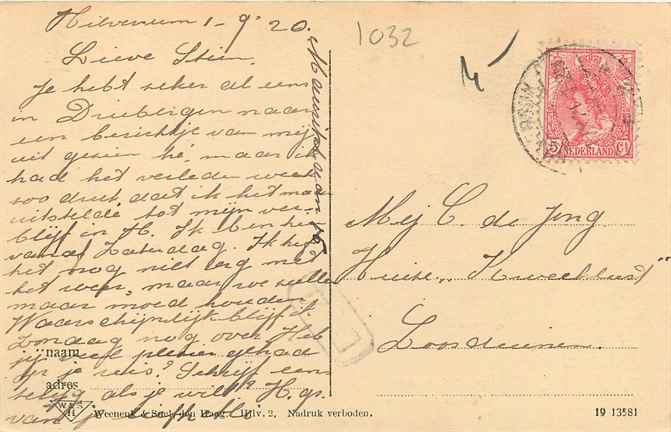 Hilversum 1-9-20.
Lieve Stien,
Je hebt zeker al eens
in Driebergen naar
een berichtje van mij
uit gezien hè, maar ik
had het verleden week
zoo druk dat ik het maar
uitstelde tot mijn ver-
blijf in H. Ik ben hier
vanaf Zaterdag. Ik heb
het nog niet erg met
het weer, maar we zullen
maar moed houden.
Waarschijnlijk blijf ik
Zondag nog over. Heb
jij veel plezier gehad
op je reis? Schrijf eens
terug als je wilt? H. gr.
van je
1032
5 CT
NEDERLAND
Mej C. de Jong
Huize "Kweeklust"
Loosduinen.
naam
adres
Weenenk & Snel, den Haag. Hilv. 2. Nadruk verboden.
19 13581